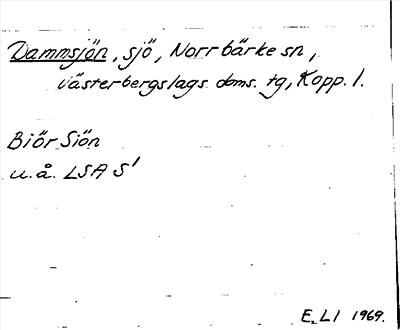 Dammsjön, sjö, Norrbärke sn,
Västerbergslags doms. tg, Kopp. l.
Biör Siön
u.å. LSA S1
E.LI 1969.